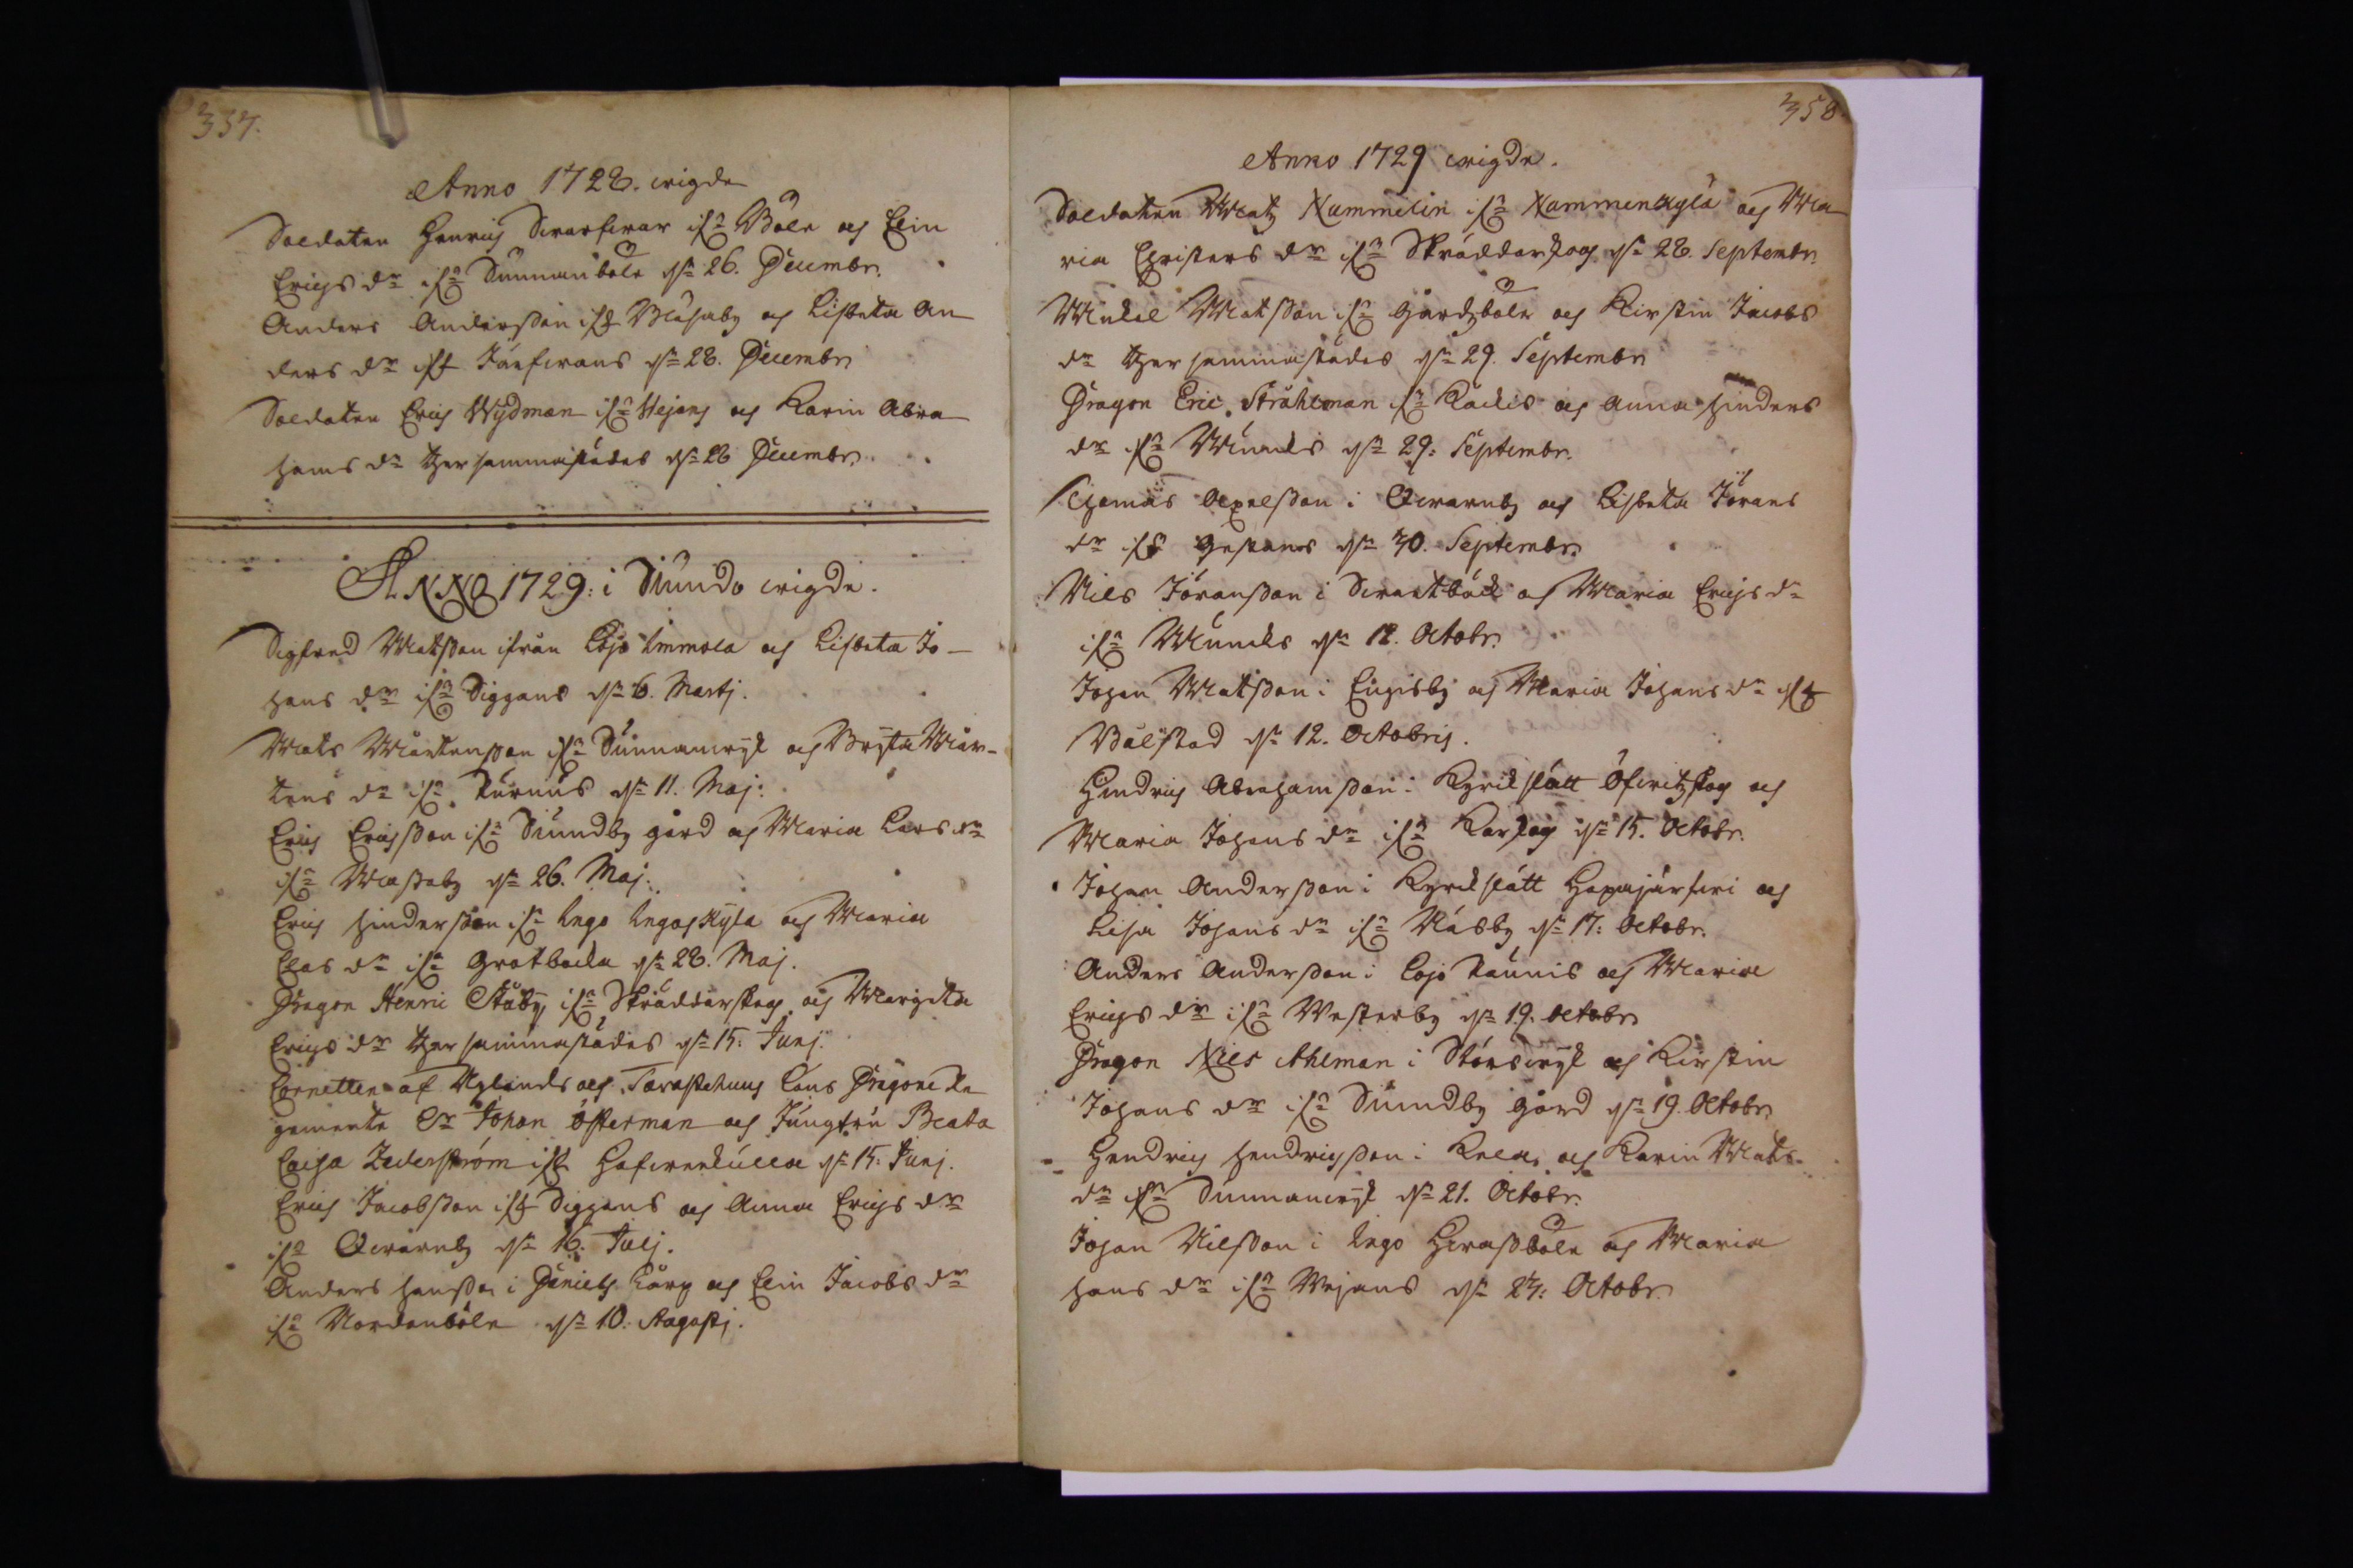 357.
Anno 1728. wigde
Soldaten Henrich Swarfwar ifrn Böle och Elin
Erichs dr ifrn Sunnanbole dn 26. Decembr.
Anders Andersson ifr Måsaby och Lisbeta An
ders dr ifr Järfwans dn 28. Decembr
Soldaten Erich Wydman ifrn Wejans och Karin Abra
hams dr ther sammastädes dn 28 Decembr.
ANNO 1729: i Siundo wigde.
Sigfred Matsson ifrån Lojo Immola och Lisbeta Jo-
hans dr ifrn Siggans dn 6. Martj.
Mats Mårtensson ifrn Sunnanwyk och Bryta Mår-
tens dr ifrn Purnus dn 11. Maj:
Erich Erichsson ifrn Siundby gård och Maria Lars dr
ifrn Masaby dn 26. Maj:
Erich Hindersson ifrn Ingo Ingaskyla och Maria
Clas dr ifrn Grotbacka dn 28. Maj.
Dragon Henric Ståby ifrn Skräddarskog och Margeta
Erichs dr ther sammastädes dn 15. Junj.
Cornetten af Nylands och Tavastehuus Läns Dragone Re
gemente Sr Johan Österman och Jungfru Beata
Caisa Zederström ifr Hafwerkulla dn 15: Junj.
Erich Jacobsson ifr Siggans och Anna Erichs dr
ifrn Qwarnby dn 16. Julj.
Anders Hansson i Daniels Kärg och Elin Jacobs dr
ifrn Nordanböle dn 10. Augustj.
358.
Anno 1729 wigde.
Soldaten Matz Nummelin ifrn Nummenkylä och Ma
ria Christers dr ifrn Skräddarskog dn 28. Septembr.
Mickel Matsson ifrn Gårdzböle och Kirstin Jacobs
dr ther sammastädes dn 29. Septembr
Dragon Eric Stråhlman ifrn Kåckis och Anna Hinders
dr ifrn Muncks dn 29: Septembr.
Thomas Axelsson i Qwarnby och Lisbeta Jörans
dr ifr Gestans dn 30. Septembr.
Nils Jöransson i Swartbäck och Maria Erichs dr
ifrn Muncks dn 12. Octobr.
Johan Matsson i Engisby och Maria Johans dr ifr
Bålstad dn 12. Octobris.
Hindrich Abrahamsson i Kyrkslätt Öfwitzskog och
Maria Johans dr ifrn Karskog dn 15. Octobr.
Johan Andersson i Kyrckslätt Hapajärfwi och
Lisa Johans dr ifrn Näsby dn 17: Octobr.
Anders Andersson i Lojo Paunis och Maria
Erichs dr ifrn Westerby dn 19. Octobr
Dragon Nils Ahlman i Störswyk och Kirstin
Johans dr ifrn Siundby Gård dn 19. Octobr.
Hendrich Hendrichsson i Kela och Karin Mats
dr ifrn Sunnanwyk dn 21. Octobr.
Johan Nilsson i Ingo Gwasböle och Maria
Hans dr ifrn Wejans dn 23: Octobr.